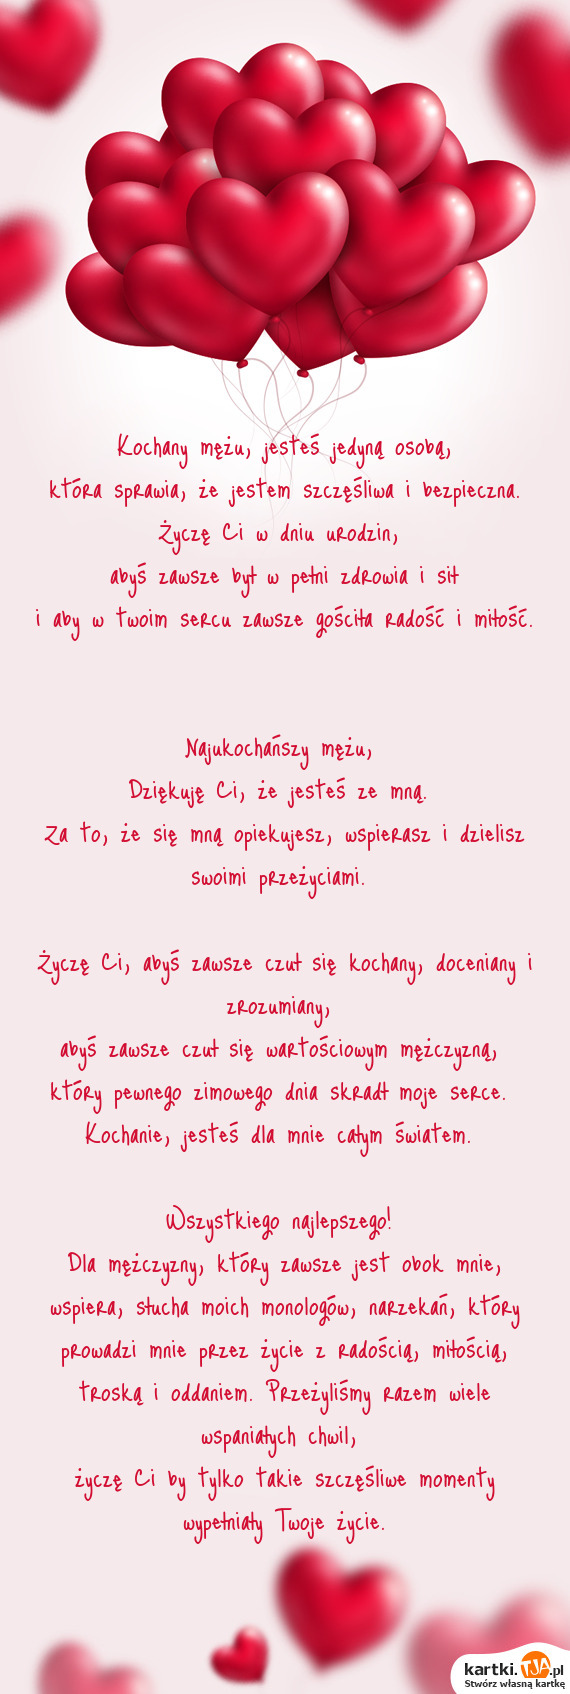 Kochany mężu, jesteś jedyną osobą,
która sprawia, że jestem szczęśliwa i bezpieczna.
Życzę Ci w dniu urodzin,
abyś zawsze był w pełni zdrowia i sił
i aby w twoim sercu zawsze gościła radość i miłość.
Najukochańszy mężu,
Dziękuję Ci, że jesteś ze mną.
Za to, że się mną opiekujesz, wspierasz i dzielisz
swoimi przeżyciami.
Życzę Ci, abyś zawsze czuł się kochany, doceniany i
zrozumiany,
abyś zawsze czuł się wartościowym mężczyzną,
który pewnego zimowego dnia skradł moje serce.
Kochanie, jesteś dla mnie całym światem.
Wszystkiego najlepszego!
Dla mężczyzny, który zawsze jest obok mnie,
wspiera, słucha moich monologów, narzekań, który
prowadzi mnie przez życie z radością, miłością,
troską i oddaniem. Przeżyliśmy razem wiele
wspaniałych chwil,
życzę Ci by tylko takie szczęśliwe momenty
wypełniały Twoje życie.
kartki.TJA.pl
Stwórz własną kartkę